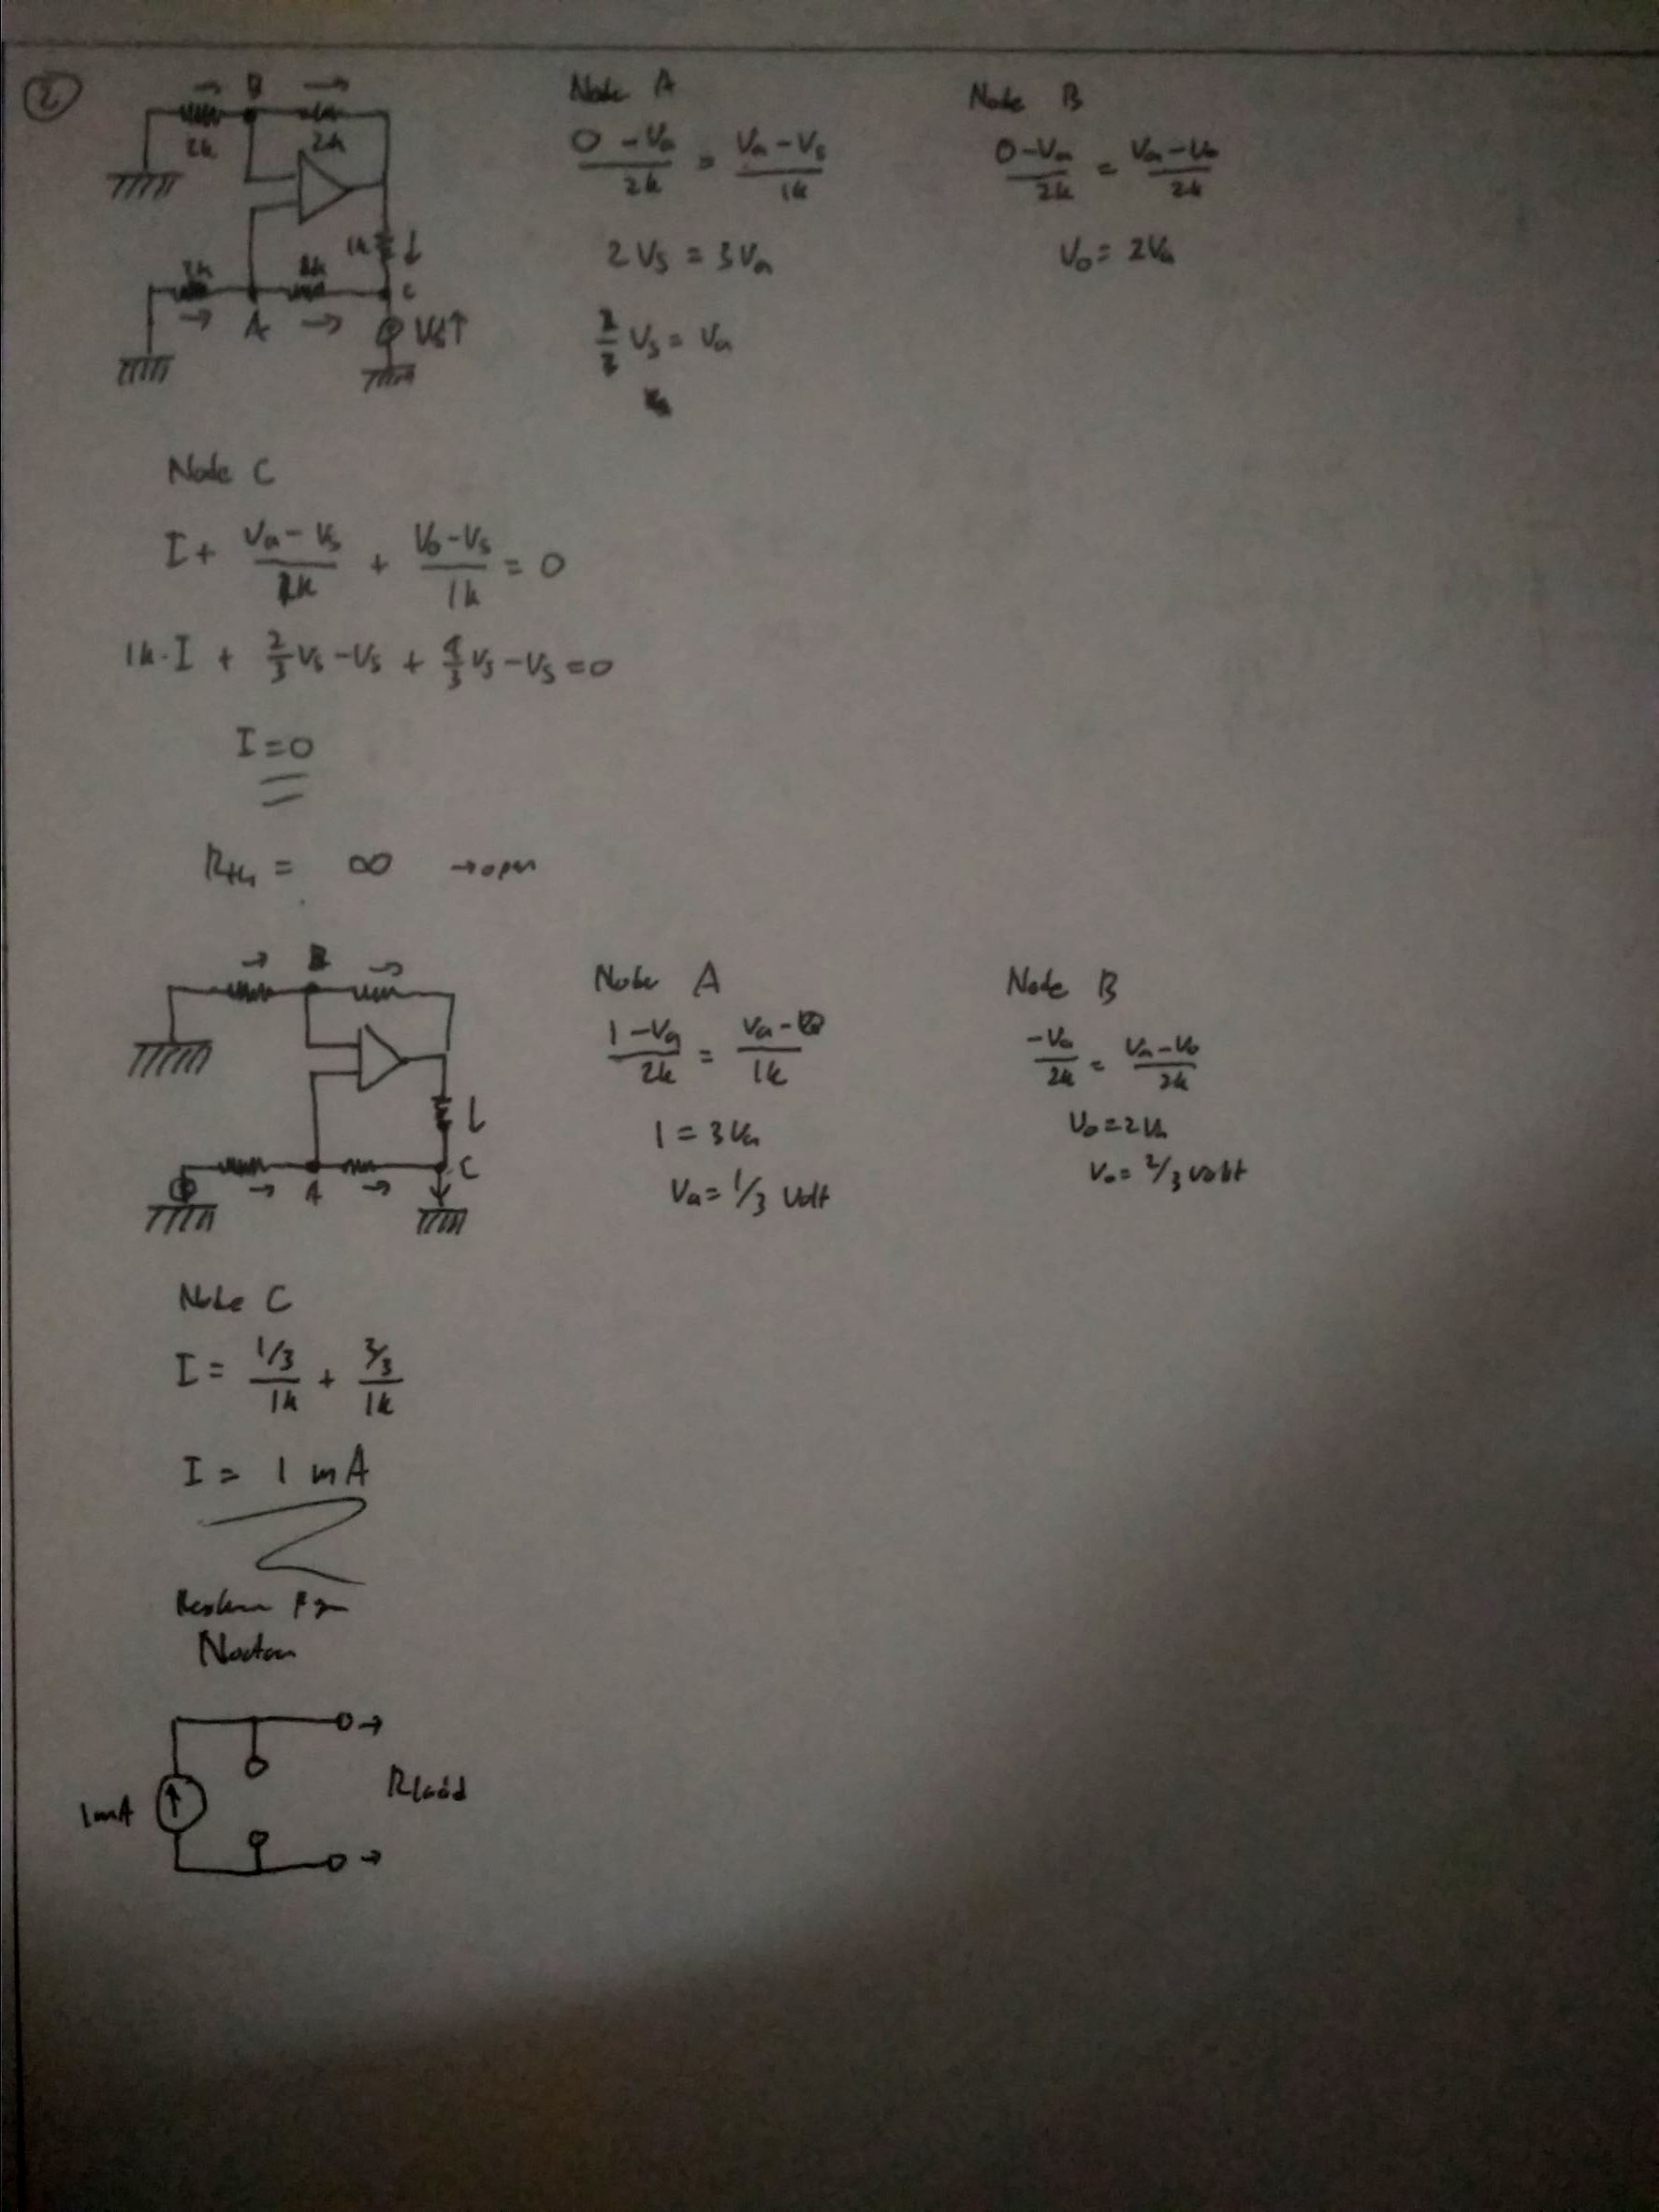 2
B
2k 2k
1k
2k 1k C
A Vs↑
Node A
(0 - Va)/2k = (Va - Vs)/1k
2Vs = 3Va
2/3 Vs = Va
Node B
(0 - Va)/2k = (Va - Vo)/2k
Vo = 2Va
Node C
I + (Va - Vs)/1k + (Vo - Vs)/1k = 0
1k·I + 2/3 Vs - Vs + 4/3 Vs - Vs = 0
I = 0
Rth = ∞ → open
B
C
A
Node A
(1 - Va)/2k = (Va - 0)/1k
1 = 3Va
Va = 1/3 Volt
Node B
-Va/2k = (Va - Vo)/2k
Vo = 2Va
Vo = 2/3 volt
Node C
I = (1/3)/1k + (2/3)/1k
I = 1 mA
Norton
1mA
Rload